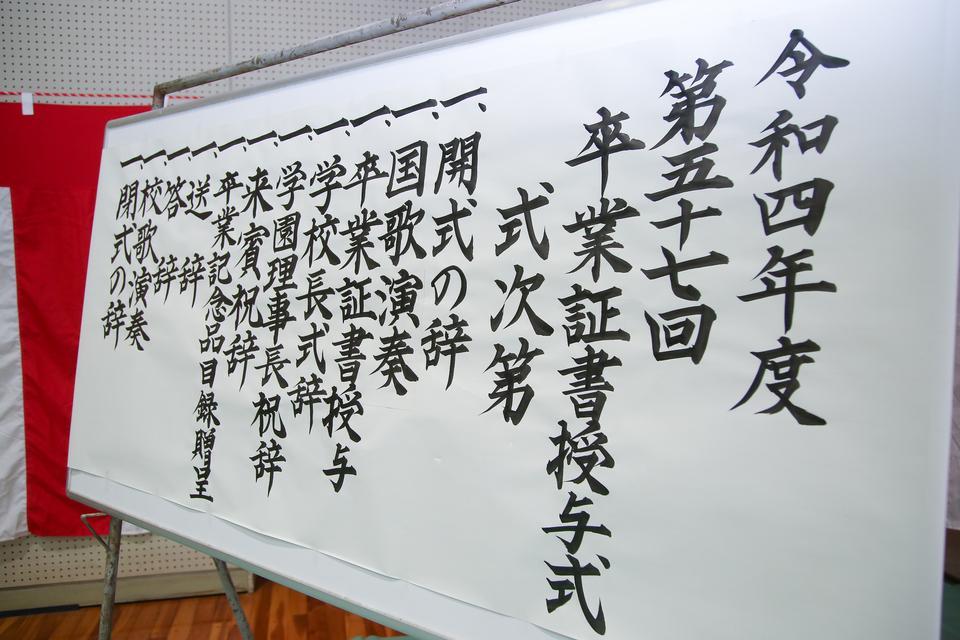 令和四年度
第五十七回
卒業証書授与式
式次第
一、開式の辞
一、国歌演奏
一、卒業証書授与
一、学校長式辞
一、学園理事長祝辞
一、来賓祝辞
一、卒業記念品目録贈呈
一、送辞
一、答辞
一、校歌演奏
一、閉式の辞